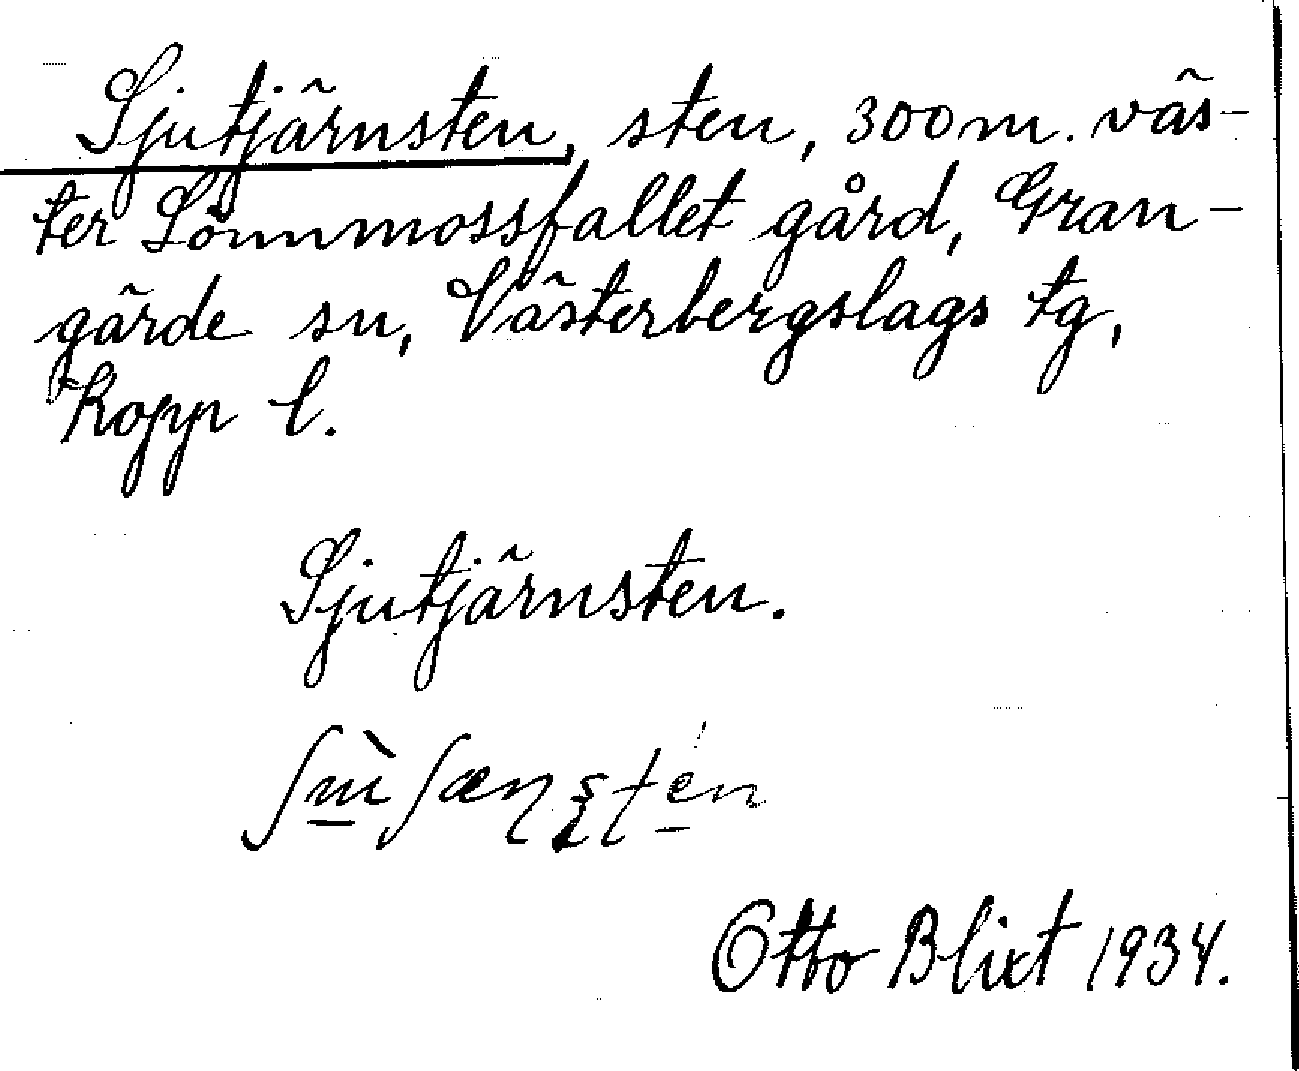 Sjutjärnsten, sten, 300 m. väs-
ter Lönnmossfallet gård, Gran-
gärde sn, Västerbergslags tg,
Kopp l.
Sjutjärnsten.
Otto Blixt 1934.